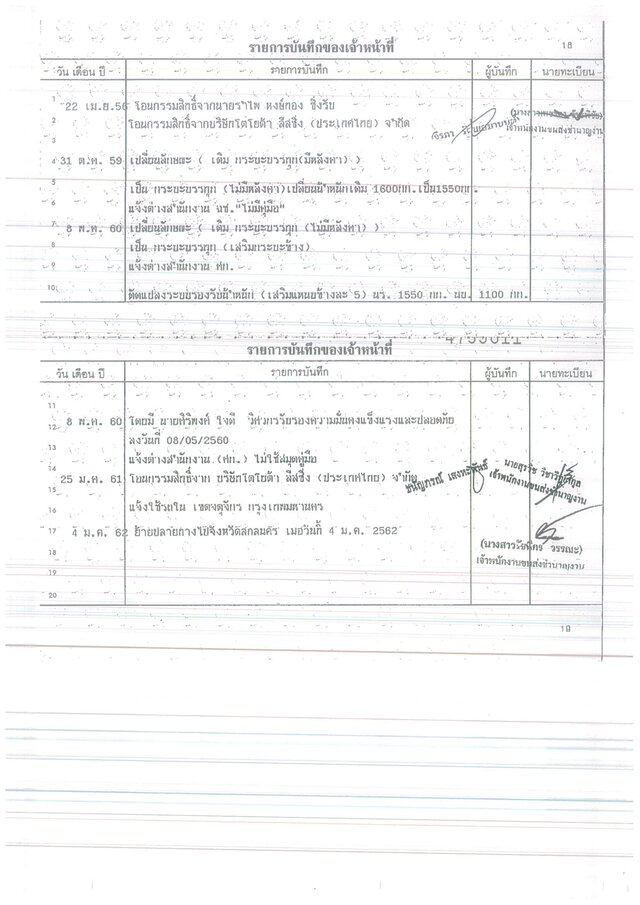 รายการบันทึกของเจ้าหน้าที่ 18
วัน เดือน ปี รายการบันทึก ผู้บันทึก นายทะเบียน
1 22 เม.ย.56 โอนกรรมสิทธิ์จากนายรำไพ หงษ์ทอง
2 โอนกรรมสิทธิ์จากบริษัทโตโยต้า ลีสซิ่ง (ประเทศไทย) จำกัด เจ้าพนักงานขนส่งชำนาญงาน
3
4 31 ต.ค. 59 เปลี่ยนลักษณะ ( เดิม กระบะบรรทุก(มีหลังคา) )
5 เป็น กระบะบรรทุก (ไม่มีหลังคา)เปลี่ยนน้ำหนักเดิม 1600กก.เป็น1550กก.
6 แจ้งต่างสำนักงาน ฉช."ไม่มีคู่มือ"
7 8 พ.ค. 60 เปลี่ยนลักษณะ ( เดิม กระบะบรรทุก (ไม่มีหลังคา) )
8 เป็น กระบะบรรทุก (เสริมกระบะข้าง)
9 แจ้งต่างสำนักงาน ศก.
10 ดัดแปลงระบบรองรับน้ำหนัก (เสริมแหนบข้างละ 5) นร. 1550 กก. นบ. 1100 กก.
4755011
รายการบันทึกของเจ้าหน้าที่
วัน เดือน ปี รายการบันทึก ผู้บันทึก นายทะเบียน
11
12 8 พ.ค. 60 โดยมี นายศิริพงศ์ ใจดี วิศวกรรับรองความมั่นคงแข็งแรงและปลอดภัย
13 ลงวันที่ 08/05/2560
14 แจ้งต่างสำนักงาน (ศก.) ไม่ใช้สมุดคู่มือ
15 25 ม.ค. 61 โอนกรรมสิทธิ์จาก บริษัทโตโยต้า ลีสซิ่ง (ประเทศไทย) จำกัด เจ้าพนักงานขนส่งชำนาญงาน
16 แจ้งใช้รถใน เขตจตุจักร กรุงเทพมหานคร
17 4 ม.ค. 62 ย้ายปลายทางไปจังหวัดสกลนคร เมื่อวันที่ 4 ม.ค. 2562
18
เจ้าพนักงานขนส่งชำนาญงาน
19
20
19